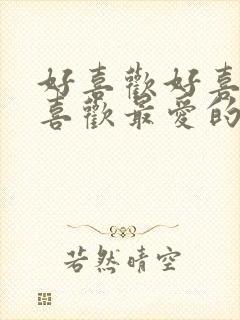 好喜歡好喜
喜歡最愛的
若然晴空